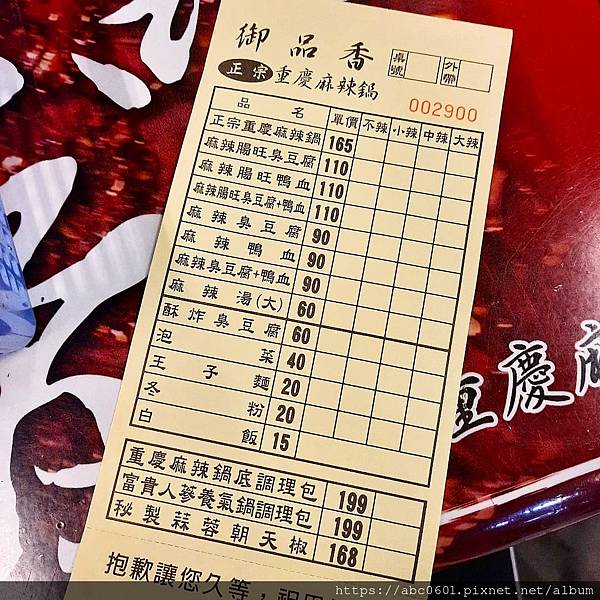 御品香
桌號
外帶
正宗 重慶麻辣鍋
002900
品名 單價 不辣 小辣 中辣 大辣
正宗重慶麻辣鍋 165
麻辣腸旺臭豆腐 110
麻辣腸旺鴨血 110
麻辣腸旺臭豆腐+鴨血 110
麻辣臭豆腐 90
麻辣鴨血 90
麻辣臭豆腐+鴨血 90
麻辣湯(大) 60
酥炸臭豆腐 60
泡菜 40
王子麵 20
冬粉 20
白飯 15
重慶麻辣鍋底調理包 199
富貴人蔘養氣鍋調理包 199
秘製蒜蓉朝天椒 168
抱歉讓您久等，祝用
重慶麻
https://abc0601.pixnet.net/album